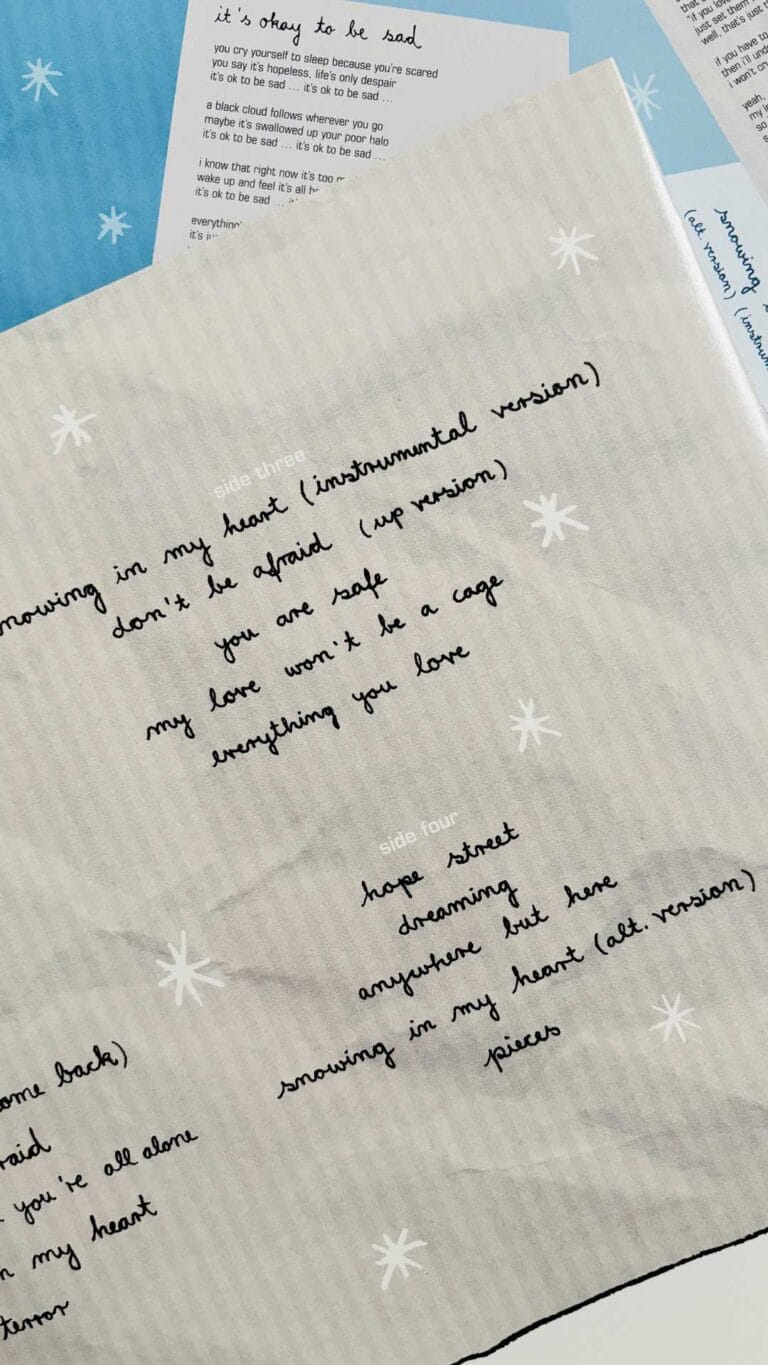 it's okay to be sad
you cry yourself to sleep because you're scared
you say it's hopeless, life's only despair
it's ok to be sad ... it's ok to be sad ...
a black cloud follows wherever you go
maybe it's swallowed up your poor halo
it's ok to be sad ... it's ok to be sad ...
i know that right now it's too
wake up and feel it's all
it's ok to be sad ...
everything'
it's
"if you
just set them
well, that's just
if you have to
then i'll
i won't
yeah,
my
so
snowing
(alt. version)
side three
snowing in my heart (instrumental version)
don't be afraid (up version)
you are safe
my love won't be a cage
everything you love
side four
hope street
dreaming
anywhere but here
snowing in my heart (alt. version)
pieces
back)
you're all alone
my heart
terror